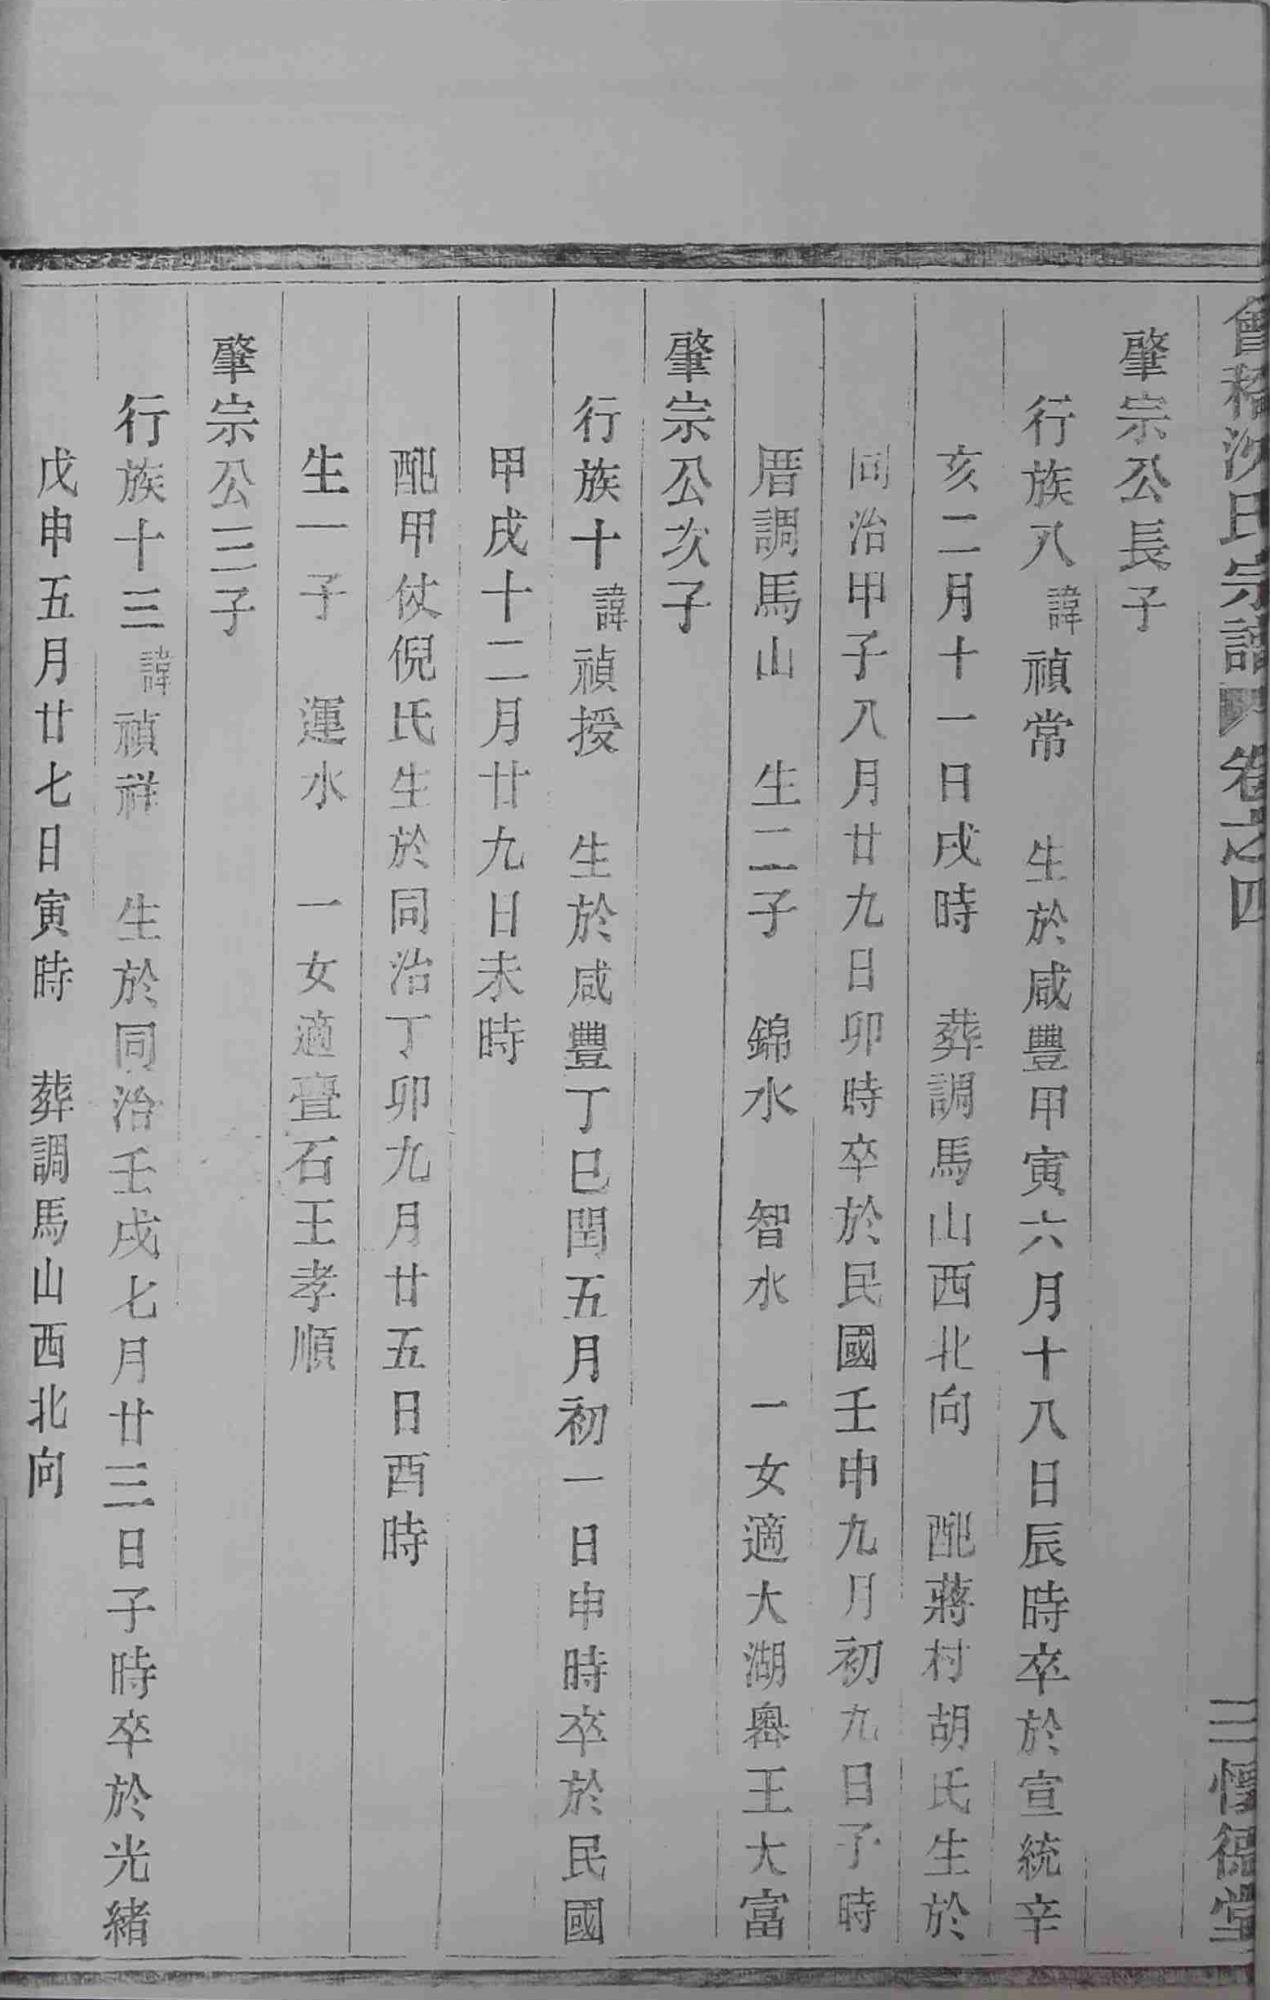 會稽沈氏宗譜 卷之四 三 懷德堂
肇宗公長子
行族八諱禎常 生於咸豐甲寅六月十八日辰時卒於宣統辛
亥二月十一日戌時 葬調馬山西北向 配蔣村胡氏生於
同治甲子八月廿九日卯時卒於民國壬申九月初九日子時
厝調馬山 生二子 錦水 智水 一女適大湖嶴王大富
肇宗公次子
行族十諱禎授 生於咸豐丁巳閏五月初一日申時卒於民國
甲戌十二月廿九日未時
配甲仗倪氏生於同治丁卯九月廿五日酉時
生一子 運水 一女適疊石王孝順
肇宗公三子
行族十三諱禎祥 生於同治壬戌七月廿三日子時卒於光緒
戊申五月廿七日寅時 葬調馬山西北向